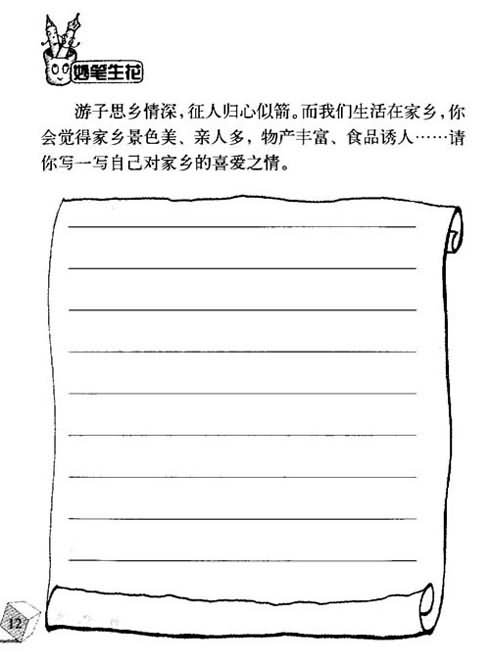 妙笔生花
游子思乡情深，征人归心似箭。而我们生活在家乡，你
会觉得家乡景色美、亲人多，物产丰富、食品诱人……请
你写一写自己对家乡的喜爱之情。
12